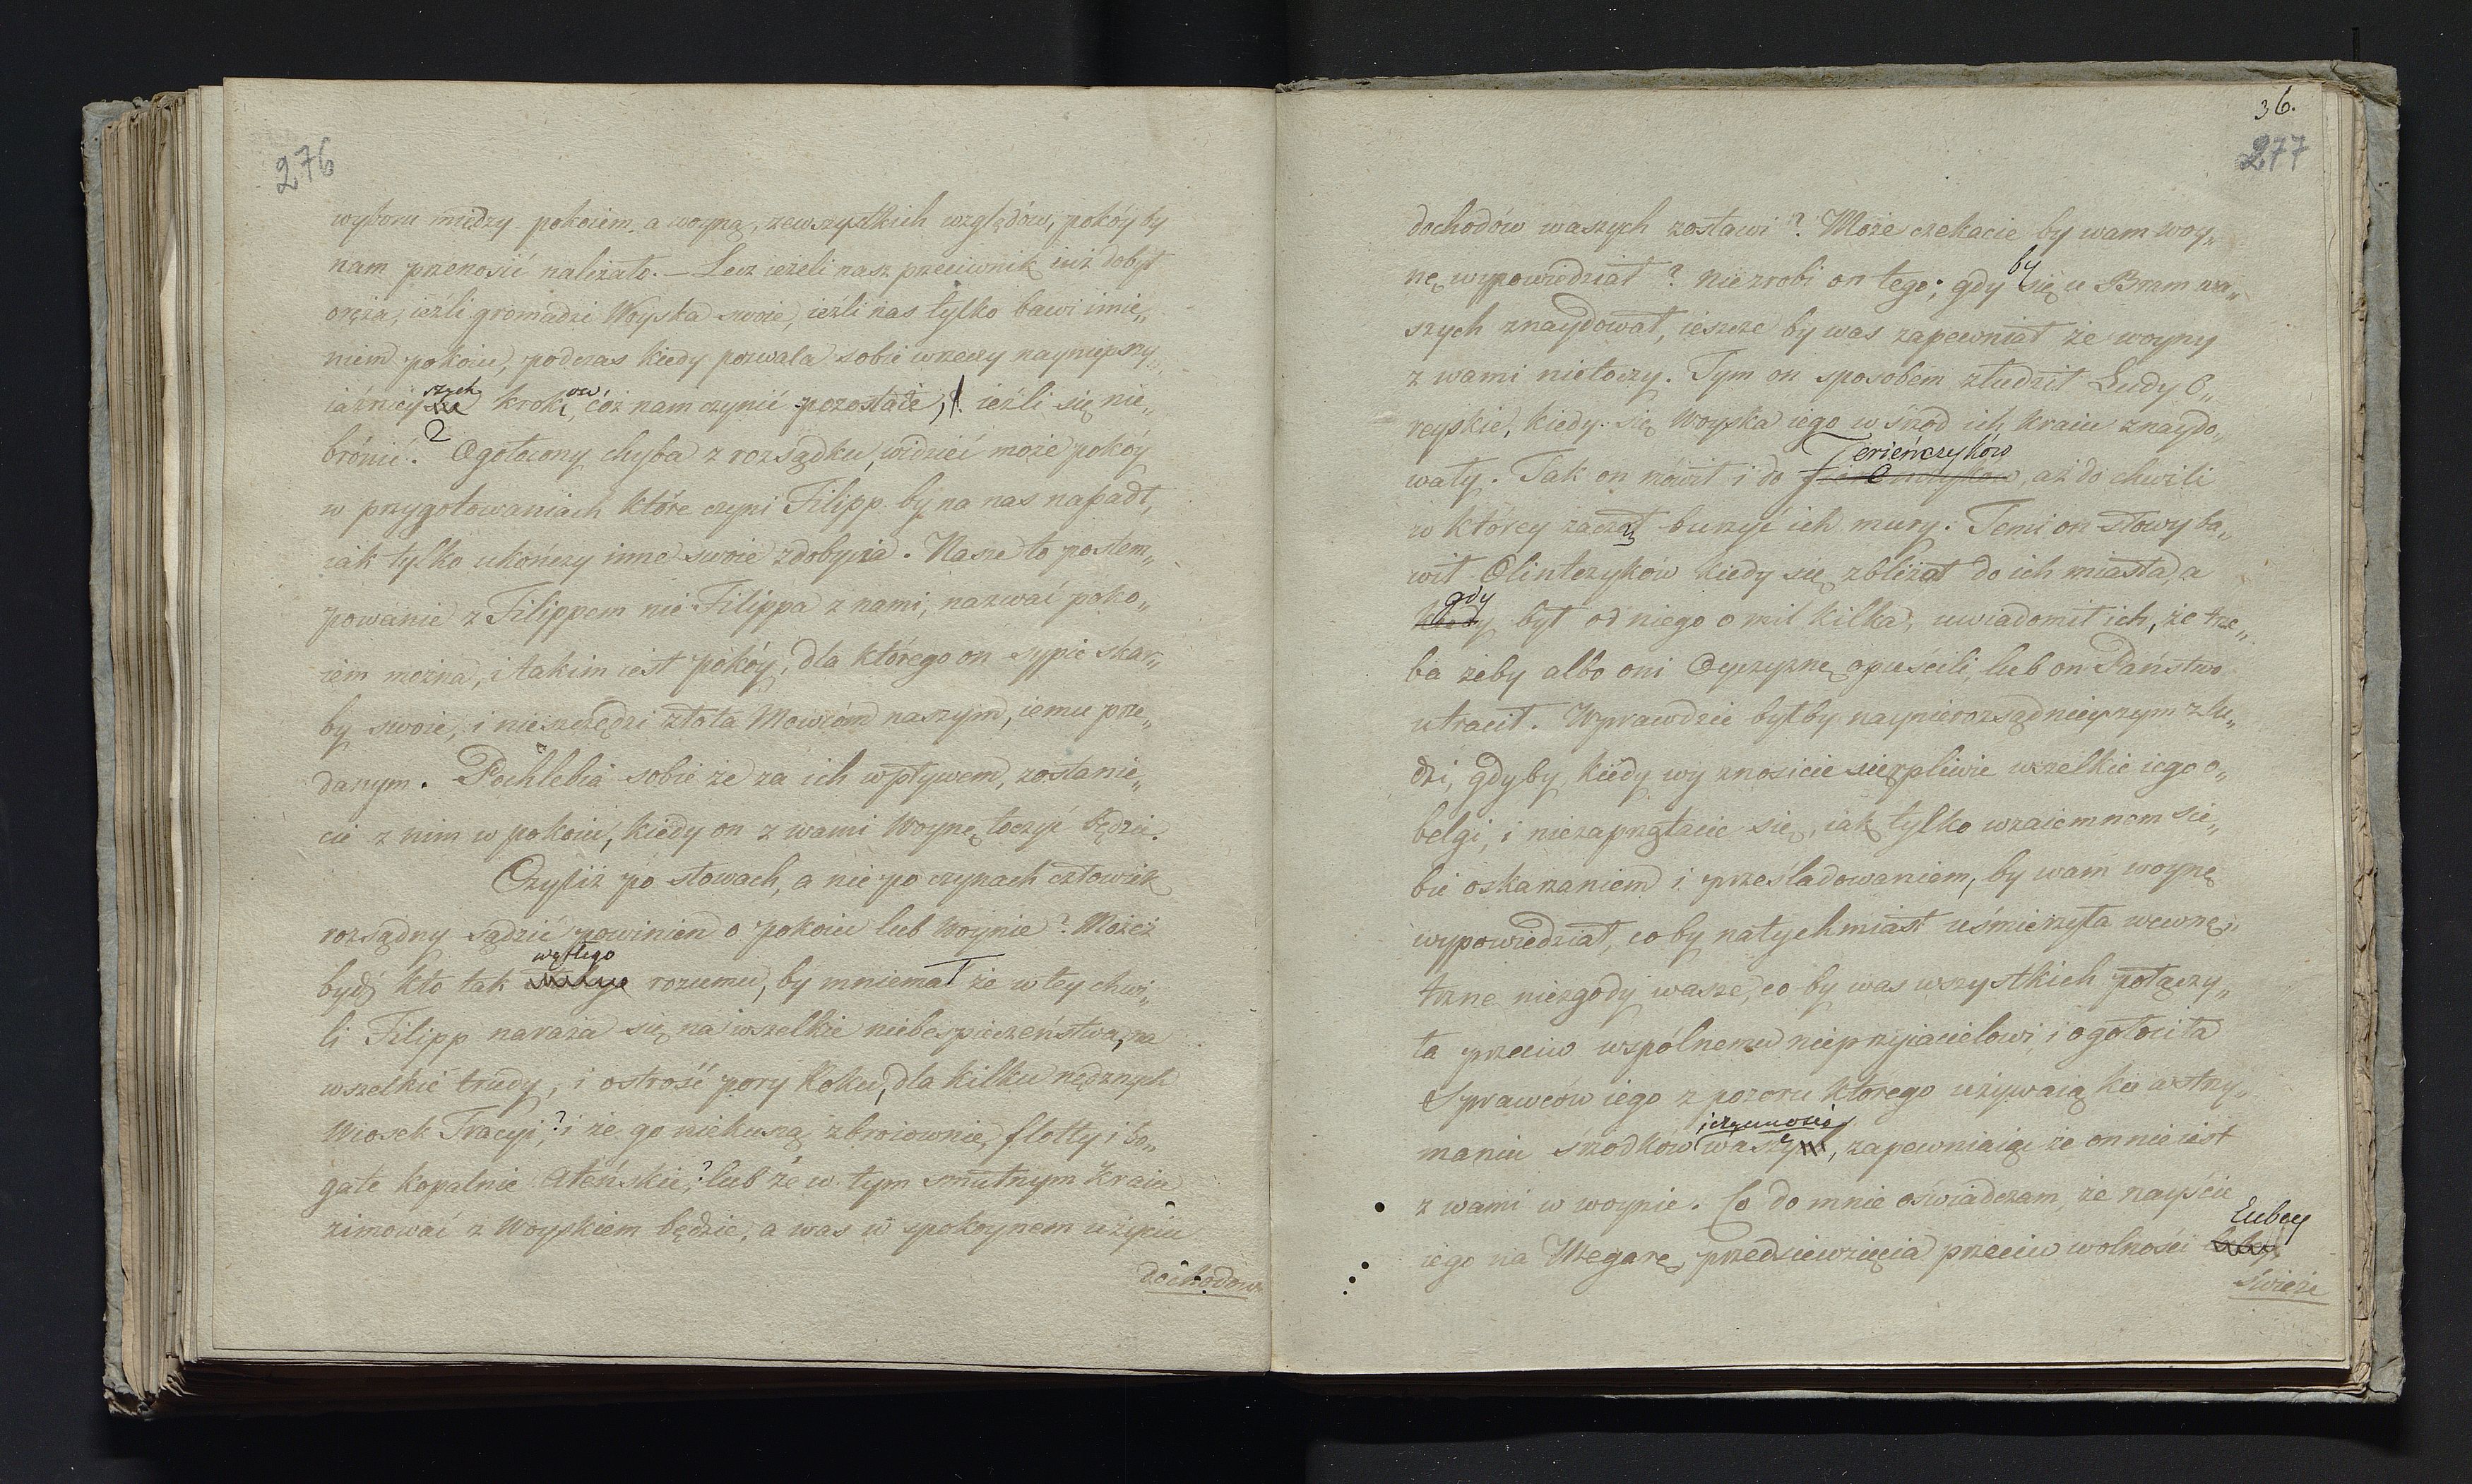 276
wyboru między pokoiem, a woyną, zewszystkich względów, pokóy by
nam przenosić należało. — Lecz ieżeli nasz przeciwnik iuż dobył
oręża, ieźli gromadzi Woyska swoie, ieźli nas tylko bawi imie„
niem pokoiu, podczas kiedy pozwala sobie wrzeczy nayniepszy„
iaźnieyszych kroków, cóż nam czynić pozostaie, ieźli się nie„
brónić? Ogołocony chyba z rozsądku, widzieć może pokóy
w przygotowaniach które czyni Filipp by na nas napadł,
iak tylko ukończy inne swoie zdobycia. Nasze to postem„
powanie z Filippem nie Filippa z nami, nazwać poko„
iem można, i takim iest pokóy, dla którego on sypie skar„
by swoie, i nieszczędzi złota Mowcom naszym, iemu prze„
danym. Pochlebia sobie że za ich wpływem, zostanie„
cie z nim w pokoiu, kiedy on z wami Woynę toczyć będzie.
Czyliż po słowach, a nie po czynach człowiek
rozsądny sądzić powinien o pokoiu lub Woynie? Możeż
bydź kto tak wątłego rozumu, by mniemał że w tey chwi„
li Filipp naraża się na wszelkie niebespieczeństwa, na
wszelkie trudy, i ostrość pory Roku, dla kilku nędznych
Wiosek Tracyi,? i że go niekuszą zbroiownie, flotty i bo„
gate kopalnie Ateńskie,? lub że w tym smutnym kraiu
zimować z Woyskiem będzie, a was w spokoynem użyciu
dochodów
36.
277
dochodów waszych zostawi? Może czekacie by wam woy„
nę wypowiedział? niezrobi on tego; gdy by się u Bram wa„
szych znaydował, ieszcze by was zapewniał że woyny
z wami nietoczy. Tym on sposobem złudził Ludy O„
reyskie, kiedy się Woyska iego w śrzod ich kraiu znaydo„
wały. Tak on mówił i do Ferieńczyków, aż do chwili
w którey zaczął burzyć ich mury. Temi on słowy ba„
wił Olintczyków kiedy się zbliżał do ich miasta, a
gdy był od niego o mil kilka, uwiadomił ich, że trze„
ba żeby albo oni Oyczyznę opuścili, lub on Państwo
utracił. Wprawdzie byłby naynierozsądnieyszym z lu„
dzi, gdyby, kiedy wy znosicie cierpliwie wszelkie iego o„
belgi, i niezaprzątacie się, iak tylko wzaiemnem sie„
bie oskarzaniem i prześladowaniem, by wam woynę
wypowiedział, co by natychmiast uśmierzyła wewnę„
trzne niezgody wasze, co by was wszystkich połączy„
ła przeciw wspólnemu nieprzyiacielowi, i ogołociła
Sprawców iego z pozoru którego używaią ku wstrzy„
maniu śrzodków i czynności waszych, zapewniaiąc że on nie iest
z wami w woynie. Co do mnie oświadczam, że nayście
iego na Megarę, przedsiewzięcia przeciw wolności Eubey
świeże